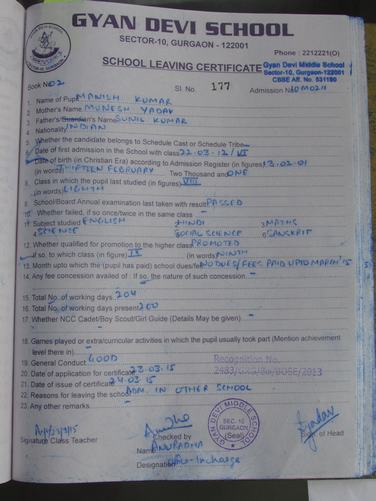 GYAN DEVI SCHOOL
SECTOR-10, GURGAON - 122001
Phone : 2212221(O)
SCHOOL LEAVING CERTIFICATE
Gyan Devi Middle School
Sector-10, Gurgaon-122001
CBSE Aff. No. 531190
Book No 02
Sl. No. 177
Admission No
1 Name of Pupil MANISH KUMAR
2 Mother's Name MUNESH YADAV
3 Father's/Guardian's Name SUNIL KUMAR
4 Nationality INDIAN
5. Whether the candidate belongs to Schedule Cast or Schedule Tribe
6 Date of first admission in the School with class 22-03-12/VI
7 Date of birth (in Christian Era) according to Admission Register (in figures) 13-02-01
(in words) THIRTEEN FEBRUARY Two Thousand and ONE
8. Class in which the pupil last studied (in figures) VIII
(in words) EIGHTH
9. School/Board Annual examination last taken with result PASSED
10. Whether failed, if so once/twice in the same class -
11. Subject studied 1 ENGLISH 2 HINDI 3 MATHS
4 SCIENCE 5 SOCIAL SCIENCE 6 SANSKRIT
12. Whether qualified for promotion to the higher class PROMOTED
If so, to which class (in figure) IX (in words) NINTH
13. Month upto which the (pupil has paid) school dues/fee NO DUES/FEES PAID UPTO MARCH'15
14. Any fee concession availed of : If so, the nature of such concession. -
15. Total No. of working days 204
16. Total No. of working days present 200
17. Whether NCC Cadet/Boy Scout/Girl Guide (Details May be given) -
18. Games played or extra/curricular activities in which the pupil usually took part (Mention achievement
level there in)
19. General Conduct GOOD
20. Date of application for certificate 23.03.15
21. Date of issue of certificate 24.03.15
22. Reasons for leaving the school ADM. IN OTHER SCHOOL
23. Any other remarks -
Recognition No.
Signature Class Teacher
Checked by
Name ANURADHA
Designation Incharge
GYAN DEVI MIDDLE SCHOOL
SEC. 10
GURGAON
(Seal)
of Head